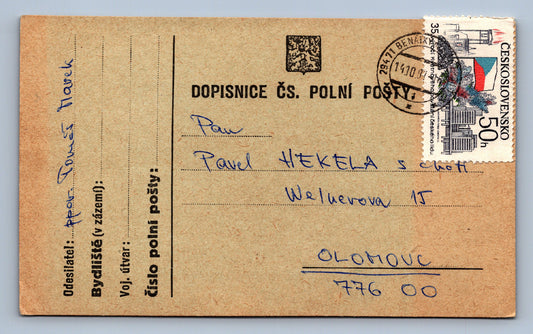 DOPISNICE ČS. POLNÍ POŠTY
Pan
Pavel HEKELA s choti
Welnerova 15
OLOMOUC
776 00
Odesilatel: ppor. Tomáš Marek
Bydliště (v zázemí):
Voj. útvar:
Číslo polní pošty:
294 71 BENÁT
14.10.
ČESKOSLOVENSKO
50h
35